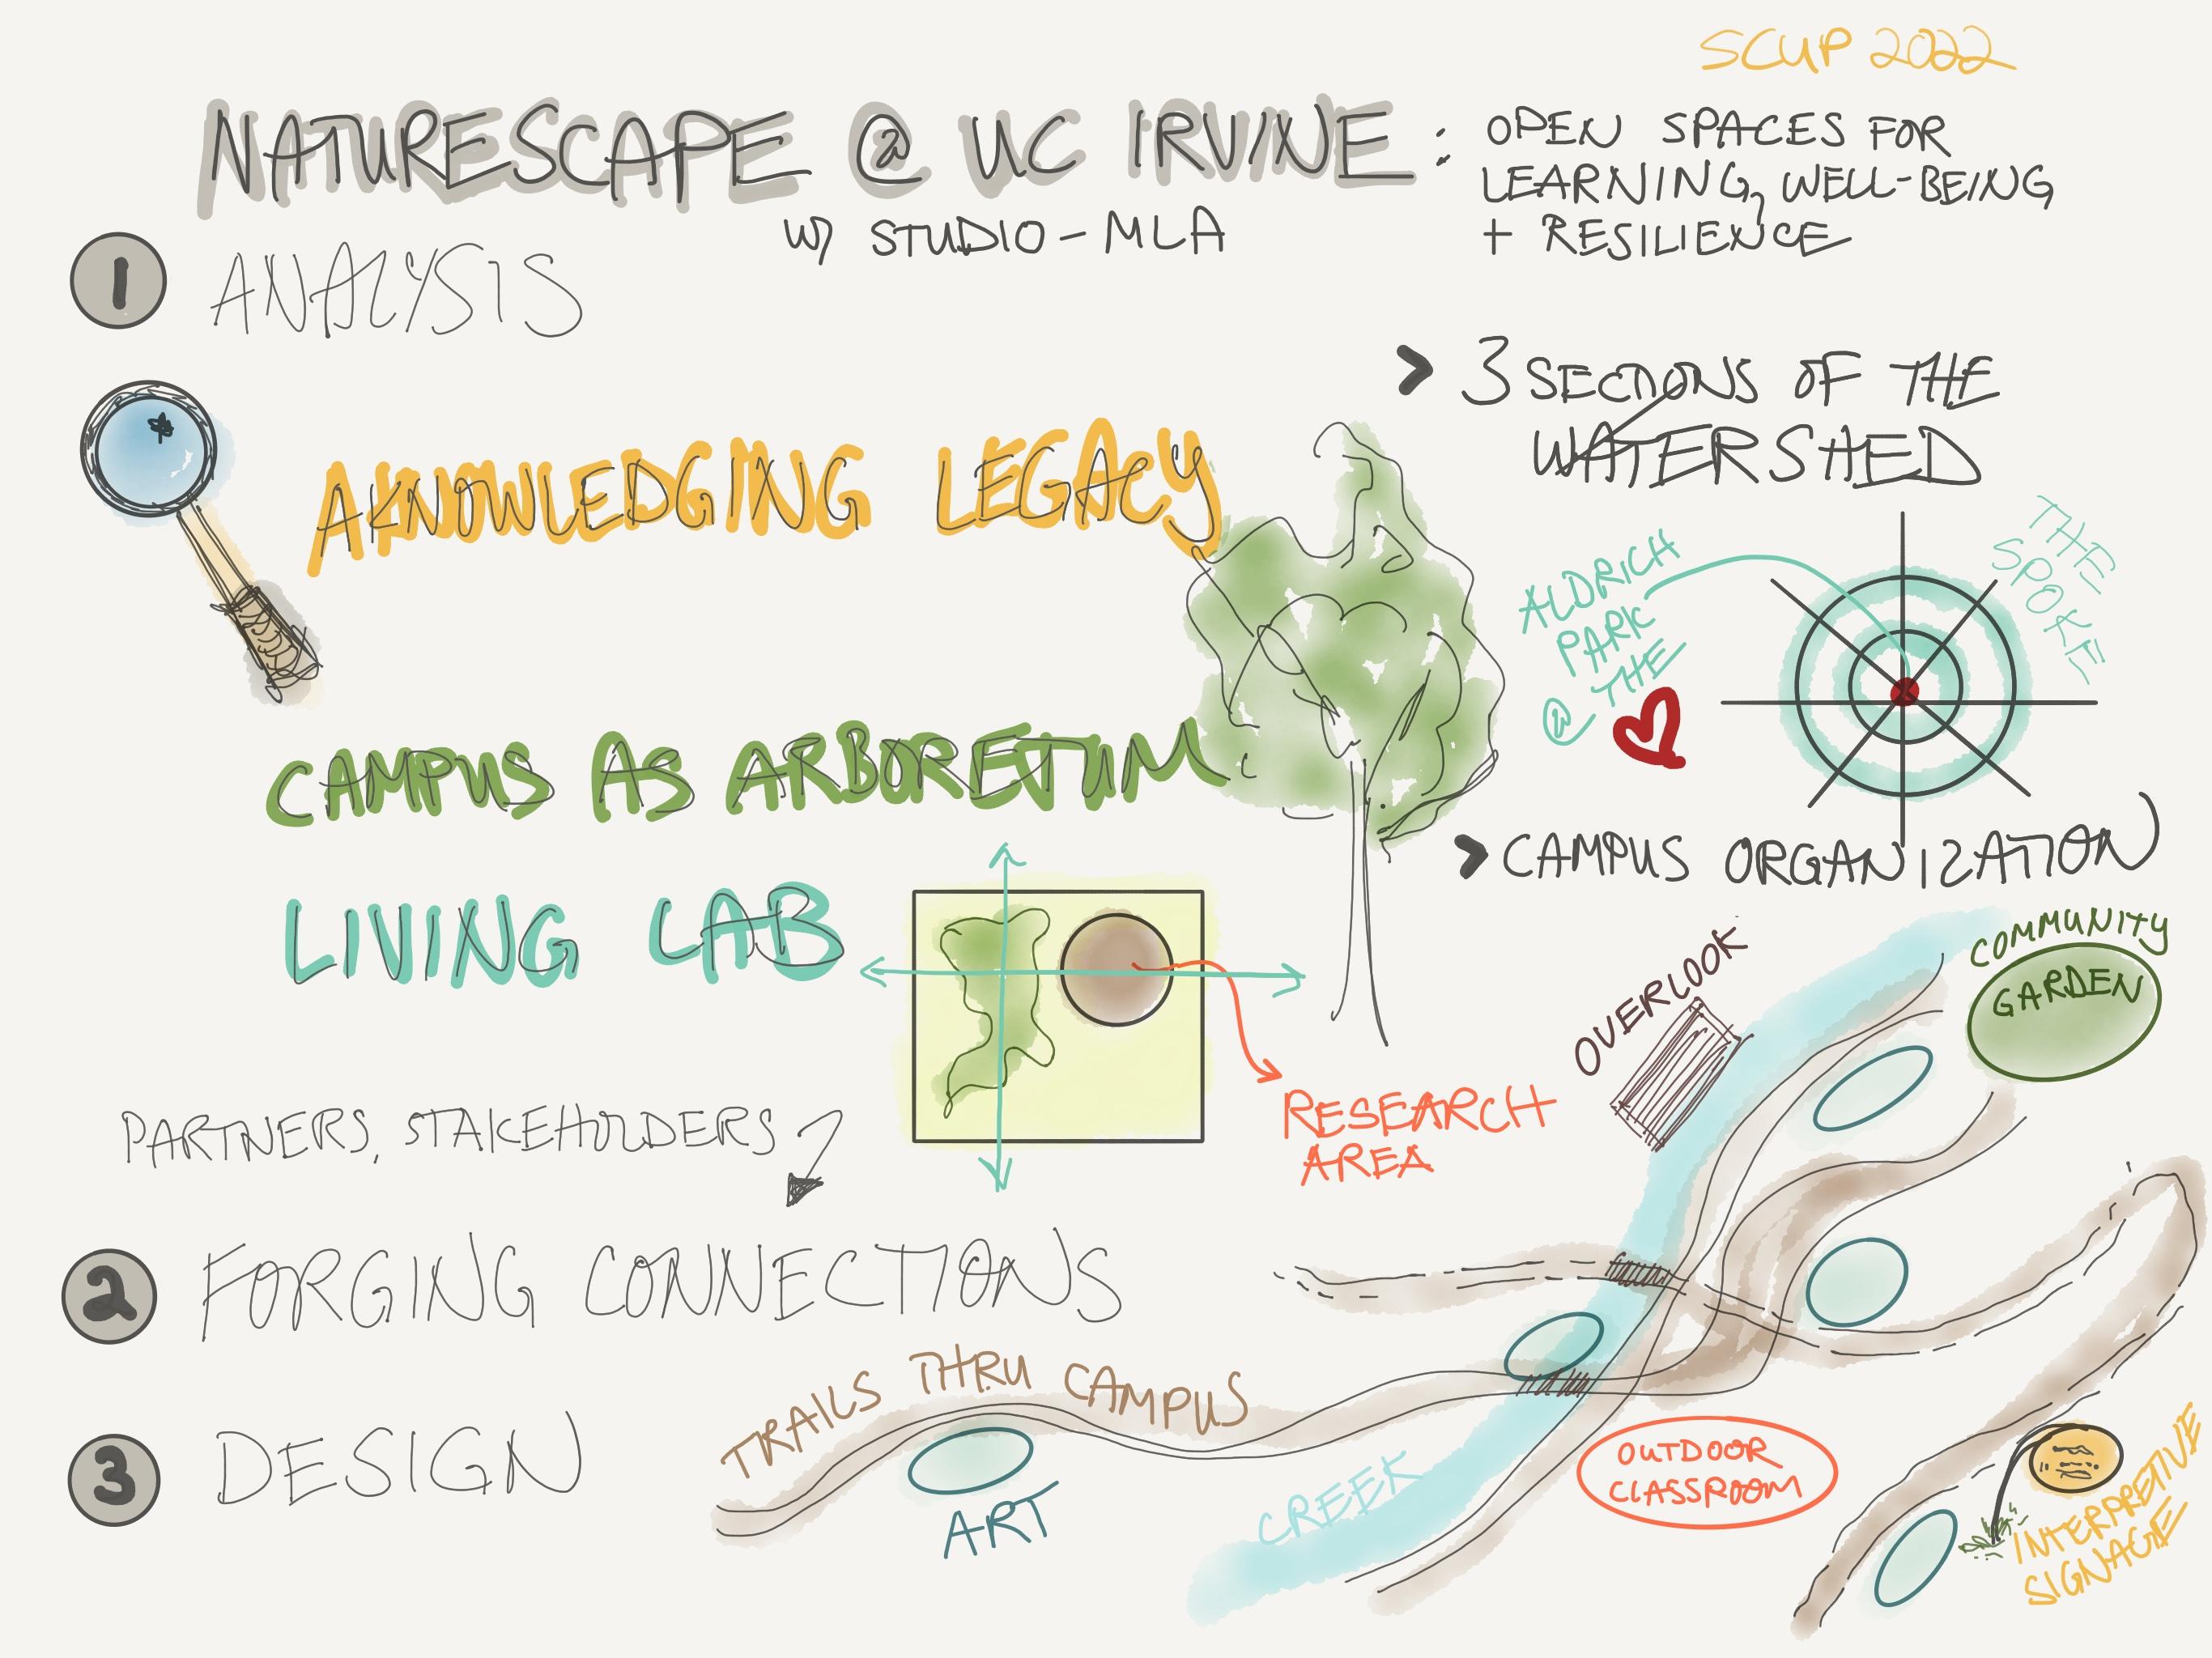 SCUP 2022
NATURESCAPE @ UC IRVINE :
OPEN SPACES FOR
LEARNING, WELL-BEING
+ RESILIENCE
W/ STUDIO-MLA
1 ANALYSIS
> 3 SECTIONS OF THE
WATERSHED
AKNOWLEDGING LEGACY
ALDRICH
PARK
@ THE
THE
SPOKE
CAMPUS AS ARBORETUM
> CAMPUS ORGANIZATION
LIVING LAB
RESEARCH
AREA
OVERLOOK
COMMUNITY
GARDEN
PARTNERS, STAKEHOLDERS
2 FORGING CONNECTIONS
TRAILS THRU CAMPUS
3 DESIGN
ART
CREEK
OUTDOOR
CLASSROOM
INTERPRETIVE
SIGNAGE